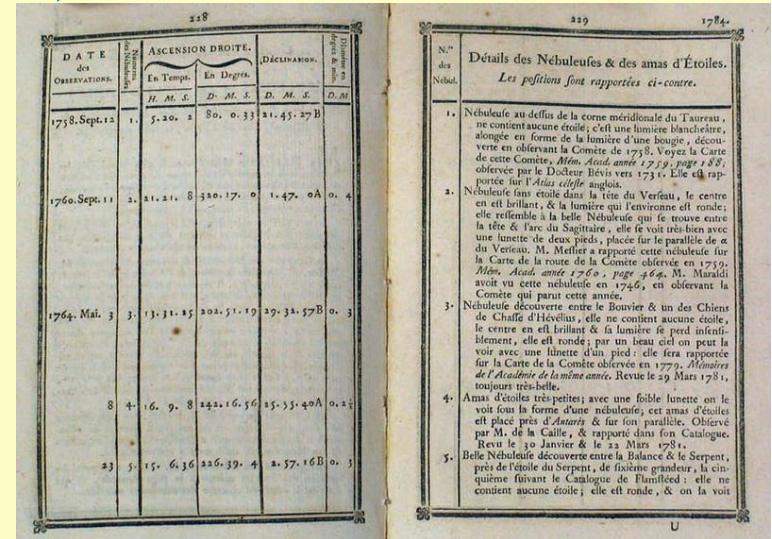 228
DATE
des
OBSERVATIONS.
Numéros
des Nébuleuses.
ASCENSION DROITE.
En Temps. En Degrés.
DÉCLINAISON.
Diamètre en
degrés & min.
H. M. S. D. M. S. D. M. S. D. M
1758. Sept. 12 1. 5. 20. 2 80. 0. 33 21. 45. 27 B
1760. Sept. 11 2. 21. 21. 8 320. 17. 0 1. 47. 0A 0. 4
1764. Mai. 3 3. 13. 31. 25 202. 51. 19 29. 32. 57B 0. 3
8 4. 16. 9. 8 242. 16. 56 25. 55. 40A 0. 2½
23 5. 15. 6. 36 226. 39. 4 2. 57. 16B 0. 3
229 1784.
N.os
des
Nébul.
Détails des Nébuleuſes & des amas d'Étoiles.
Les poſitions ſont rapportées ci-contre.
1. Nébuleuſe au-deſſus de la corne méridionale du Taureau,
ne contient aucune étoile; c'eſt une lumière blancheâtre,
alongée en forme de la lumière d'une bougie, décou-
verte en obſervant la Comète de 1758. Voyez la Carte
de cette Comète, Mém. Acad. année 1759, page 188;
obſervée par le Docteur Bévis vers 1731. Elle eſt rap-
portée ſur l'Atlas céleſte anglois.
2. Nébuleuſe ſans étoile dans la tête du Verſeau, le centre
en eſt brillant, & la lumière qui l'environne eſt ronde;
elle reſſemble à la belle Nébuleuſe qui ſe trouve entre
la tête & l'arc du Sagittaire, elle ſe voit très-bien avec
une lunette de deux pieds, placée ſur le parallèle de α
du Verſeau. M. Meſſier a rapporté cette nébuleuſe ſur
la Carte de la route de la Comète obſervée en 1759.
Mém. Acad. année 1760, page 464. M. Maraldi
avoit vu cette nébuleuſe en 1746, en obſervant la
Comète qui parut cette année.
3. Nébuleuſe découverte entre le Bouvier & un des Chiens
de Chaſſe d'Hévélius, elle ne contient aucune étoile,
le centre en eſt brillant & ſa lumière ſe perd inſenſi-
blement, elle eſt ronde; par un beau ciel on peut la
voir avec une lunette d'un pied: elle ſera rapportée
ſur la Carte de la Comète obſervée en 1779. Mémoires
de l'Académie de la même année. Revue le 29 Mars 1781,
toujours très-belle.
4. Amas d'étoiles très-petites; avec une foible lunette on le
voit ſous la forme d'une nébuleuſe; cet amas d'étoiles
eſt placé près d'Antarès & ſur ſon parallèle. Obſervé
par M. de la Caille, & rapporté dans ſon Catalogue.
Revu le 30 Janvier & le 22 Mars 1781.
5. Belle Nébuleuſe découverte entre la Balance & le Serpent,
près de l'étoile du Serpent, de ſixième grandeur, la cin-
quième ſuivant le Catalogue de Flamſtéed: elle ne
contient aucune étoile; elle eſt ronde, & on la voit
U